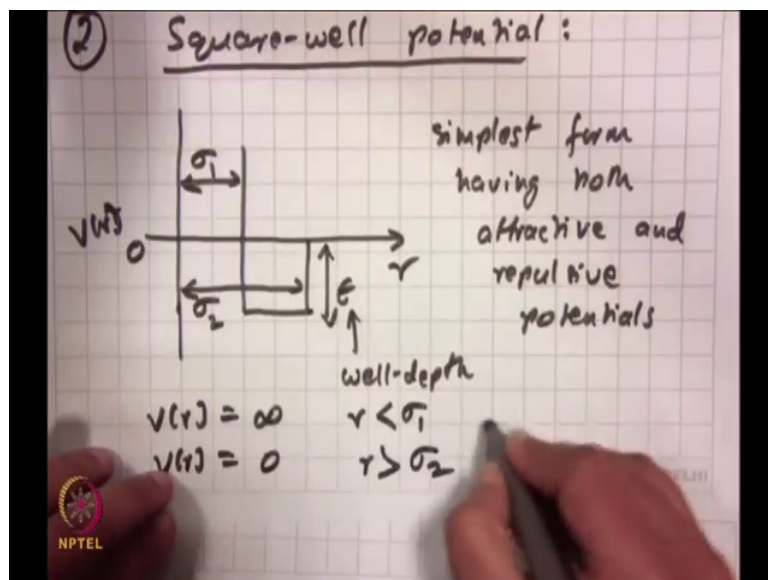 ② Square-well potential :
σ₁
simplest form
having both
V(r)
0
attractive and
r
repulsive
σ₂
ϵ
potentials
well-depth
V(r) = ∞ r < σ₁
V(r) = 0 r > σ₂
NPTEL